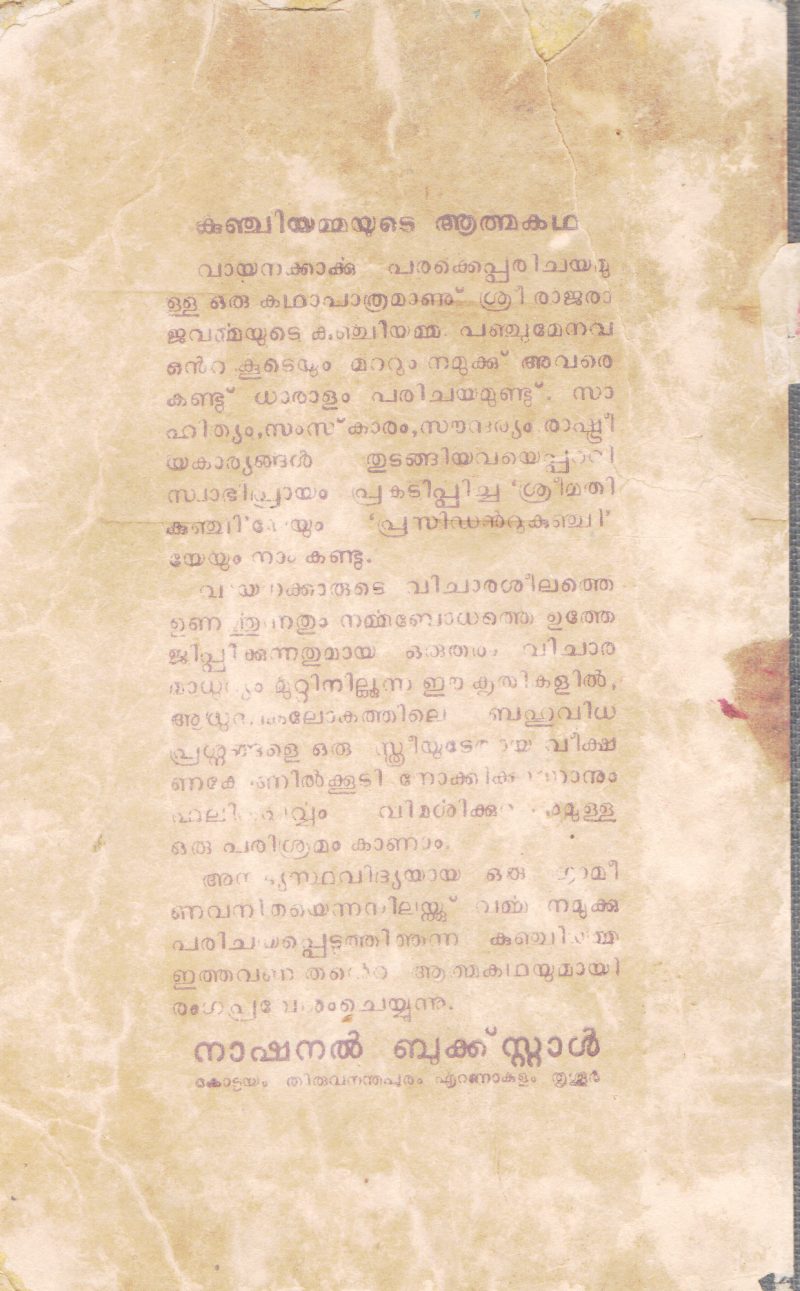 കുഞ്ചിയമ്മയുടെ ആത്മകഥ
വായനക്കാൎക്കു പരക്കെപ്പരിചയമു
ള്ള ഒരു കഥാപാത്രമാണു് ശ്രീ രാജരാ
ജവൎമ്മയുടെ കുഞ്ചിയമ്മ. പഞ്ചുമേനവ
ഒൻറ കൂടെയും മററും നമുക്കു് അവരെ
കണ്ടു് ധാരാളം പരിചയമുണ്ടു്. സാ
ഹിത്യം,സംസ്കാരം,സൗന്ദൎയ്യം രാഷ്ട്രീ
യകാര്യങ്ങൾ തുടങ്ങിയവയെപ്പററി
സ്വാഭിപ്രായം പ്രകടിപ്പിച്ച ‘ശ്രീമതി
കുഞ്ചി’യേയും ‘പ്രസിഡൻറുകുഞ്ചി’
യേയും നാം കണ്ടു.
വായനക്കാരുടെ വിചാരശീലത്തെ
ഉണൎത്തുന്നതും നൎമ്മബോധത്തെ ഉത്തേ
ജിപ്പിക്കുന്നതുമായ ഒരുതരം വിചാര
മാധുൎയ്യം മുറ്റിനില്ക്കുന്ന ഈ കൃതികളിൽ,
ആധുനികലോകത്തിലെ ബഹുവിധ
പ്രശ്നങ്ങളെ ഒരു സ്ത്രീയുടേതായ വീക്ഷ
ണകോണിൽക്കൂടി നോക്കിക്കാണാനും
ഫലിതപൂൎവ്വം വിമൎശിക്കുവാനുമുള്ള
ഒരു പരിശ്രമം കാണാം.
അനഭ്യസ്ഥവിദ്യയായ ഒരു ഗ്രാമീ
ണവനിതയെന്നനിലയ്ക്കു് വൎമ്മ നമുക്കു
പരിചയപ്പെടുത്തിത്തന്ന കുഞ്ചിയമ്മ
ഇത്തവണ തൻെറ ആത്മകഥയുമായി
രംഗപ്രവേശംചെയ്യുന്നു.
നാഷനൽ ബുക്ക് സ്റ്റാൾ
കോട്ടയം തിരുവനന്തപുരം എറണാകുളം തൃശ്ശൂർ